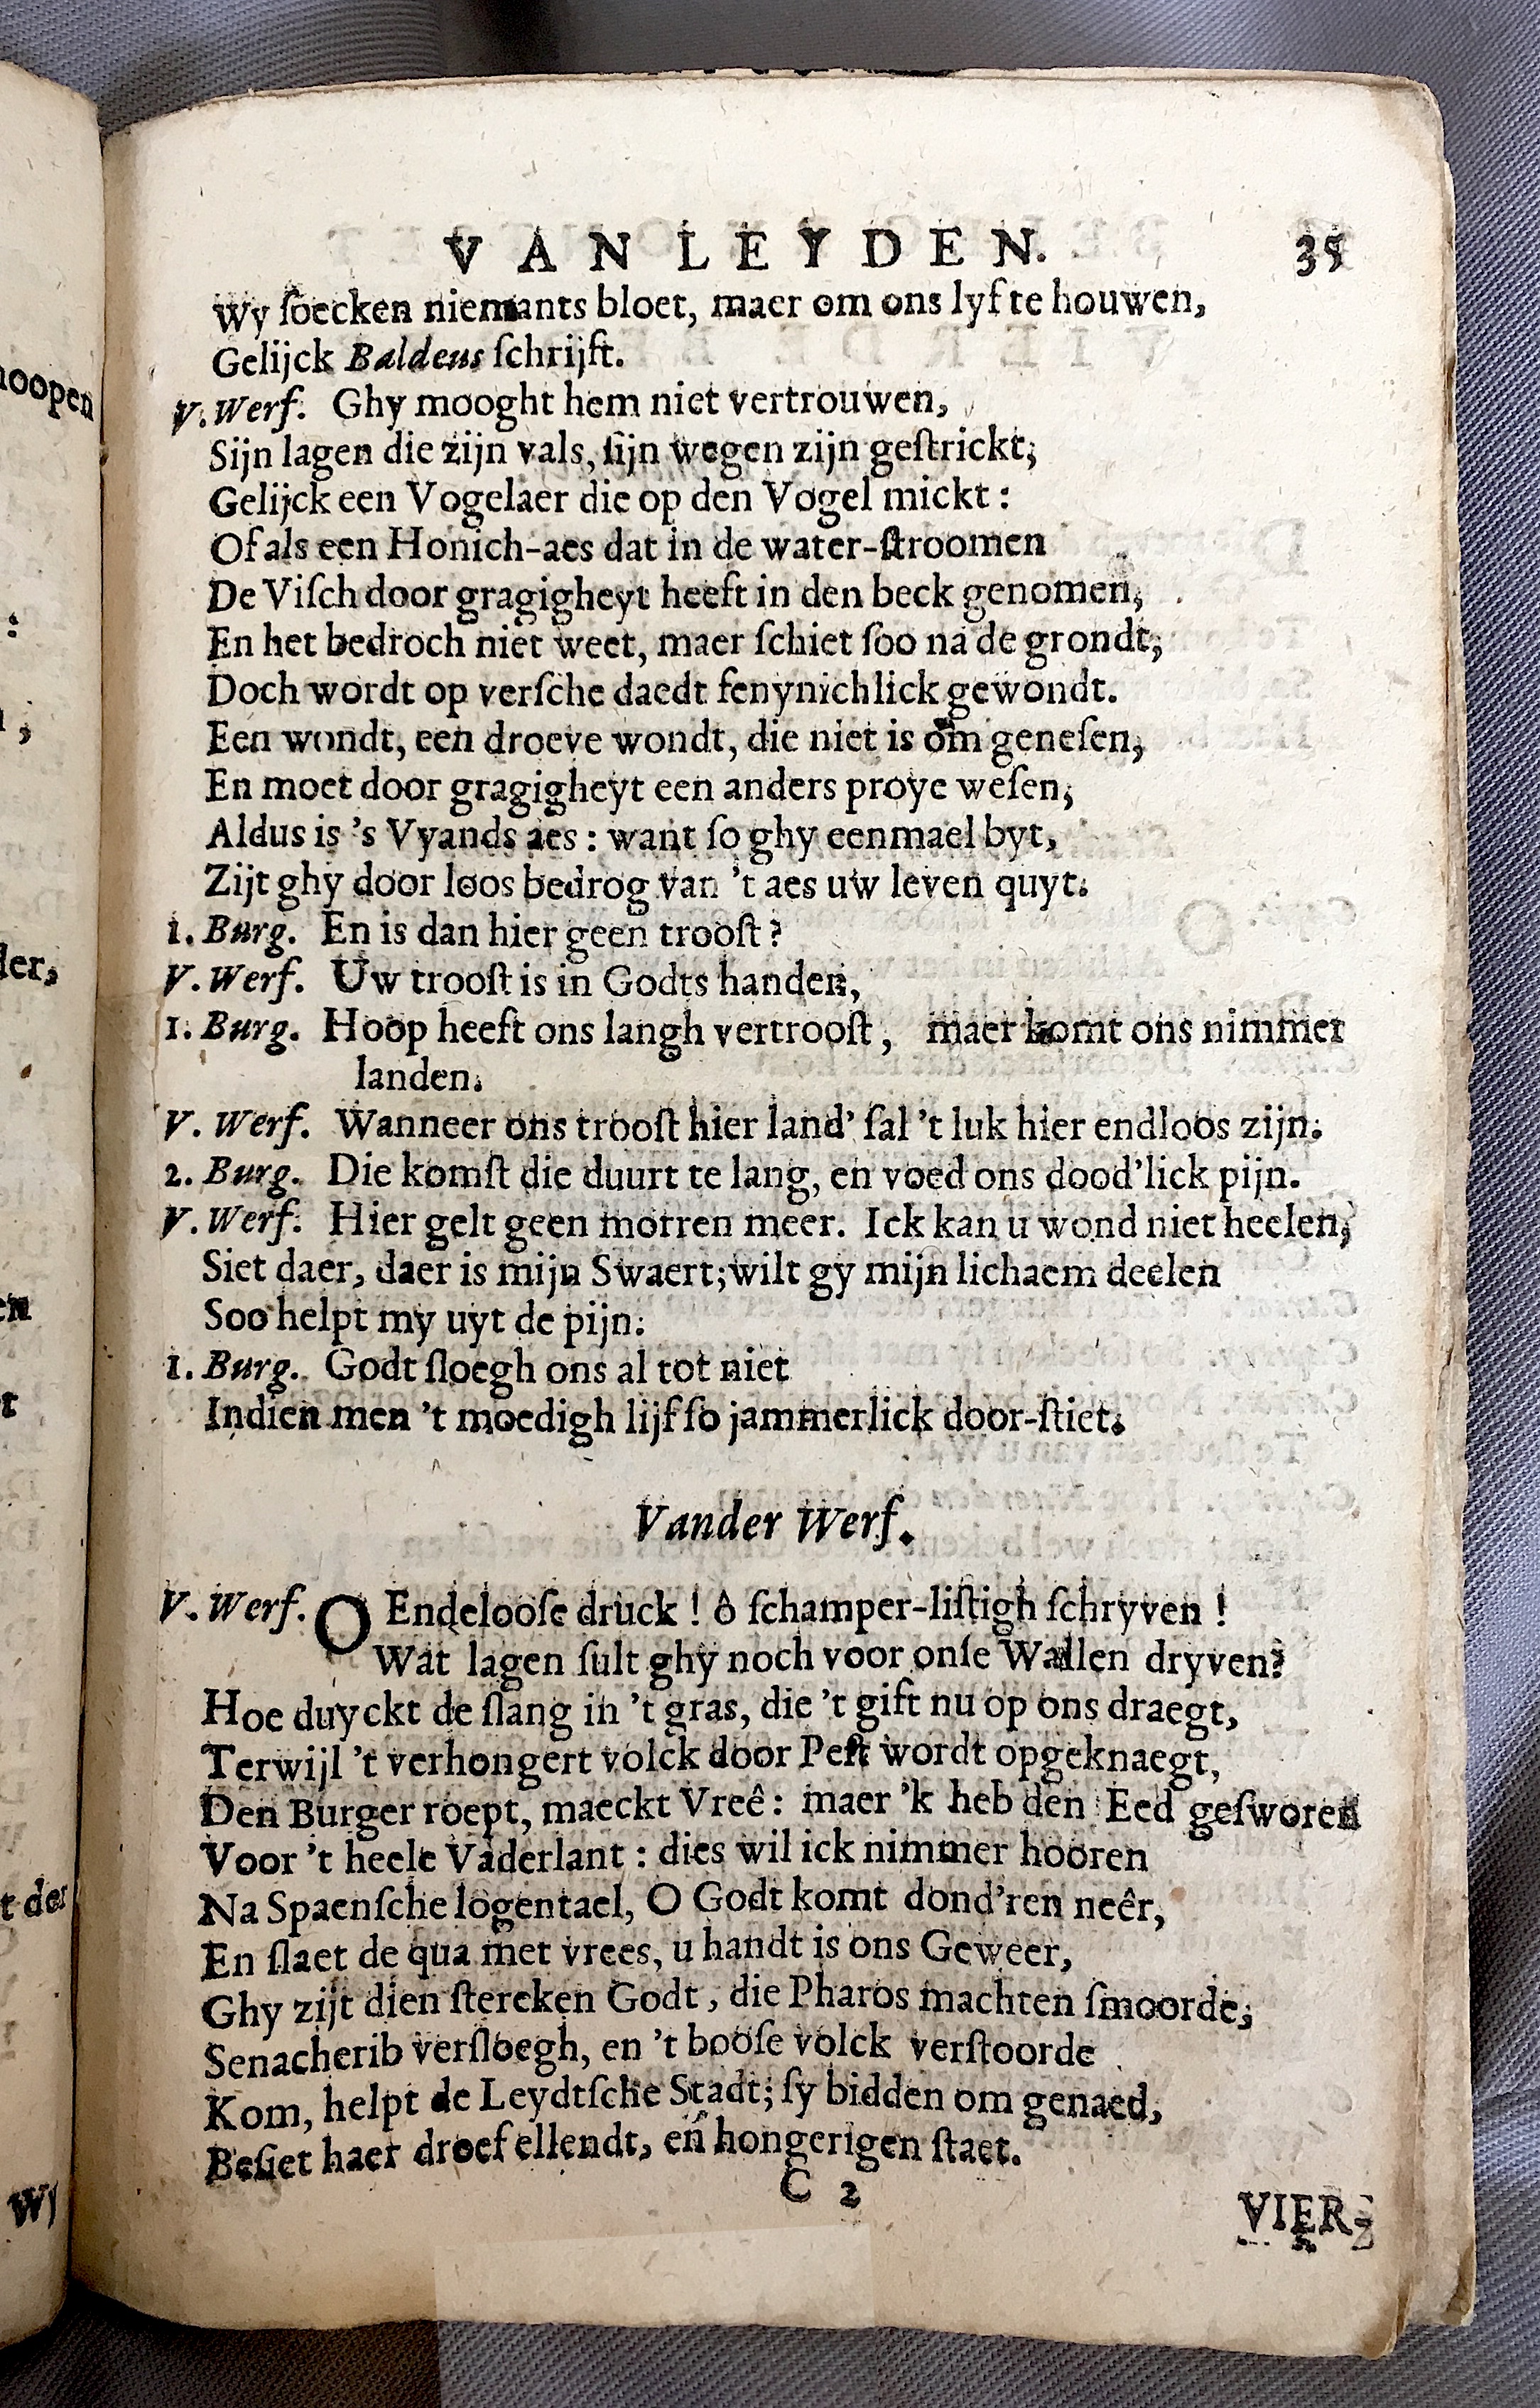 VAN LEYDEN. 35
Wy ſoecken niemants bloet, maer om ons lyf te houwen,
Gelijck Baldeus ſchrijft.
V. Werf. Ghy mooght hem niet vertrouwen,
Sijn lagen die zijn vals, ſijn wegen zijn geſtrickt;
Gelijck een Vogelaer die op den Vogel mickt:
Of als een Honich-aes dat in de water-ſtroomen
De Viſch door gragigheyt heeft in den beck genomen,
En het bedroch niet weet, maer ſchiet ſoo na de grondt;
Doch wordt op verſche daedt fenynichlick gewondt.
Een wondt, een droeve wondt, die niet is om geneſen,
En moet door gragigheyt een anders proye weſen;
Aldus is 's Vyands aes: want ſo ghy eenmael byt,
Zijt ghy door loos bedrog van 't aes uw leven quyt.
1. Burg. En is dan hier geen trooſt?
V. Werf. Uw trooſt is in Godts handen,
1. Burg. Hoop heeft ons langh vertrooſt, maer komt ons nimmer
landen.
V. Werf. Wanneer ons trooſt hier land' ſal 't luk hier endloos zijn.
2. Burg. Die komſt die duurt te lang, en voed ons dood'lick pijn.
V. Werf. Hier gelt geen morren meer. Ick kan u wond niet heelen,
Siet daer, daer is mijn Swaert; wilt gy mijn lichaem deelen
Soo helpt my uyt de pijn.
1. Burg. Godt ſloegh ons al tot niet
Indien men 't moedigh lijf ſo jammerlick door-ſtiet.
Vander Werf.
V. Werf. O Endelooſe druck! ô ſchamper-liſtigh ſchryven!
Wat lagen ſult ghy noch voor onſe Wallen dryven?
Hoe duyckt de ſlang in 't gras, die 't gift nu op ons draegt,
Terwijl 't verhongert volck door Peſt wordt opgeknaegt,
Den Burger roept, maeckt Vreê: maer 'k heb den Eed geſworen
Voor 't heele Vaderlant: dies wil ick nimmer hooren
Na Spaenſche logentael, O Godt komt dond'ren neêr,
En ſlaet de qua met vrees, u handt is ons Geweer,
Ghy zijt dien ſtercken Godt, die Pharos machten ſmoorde,
Senacherib verſloegh, en 't booſe volck verſtoorde
Kom, helpt de Leydtſche Stadt; ſy bidden om genaed,
Beſiet haer droef ellendt, eñ hongerigen ſtaet.
C 2
VIER-
hoopen
:
;
der,
en
t
t der
Wy